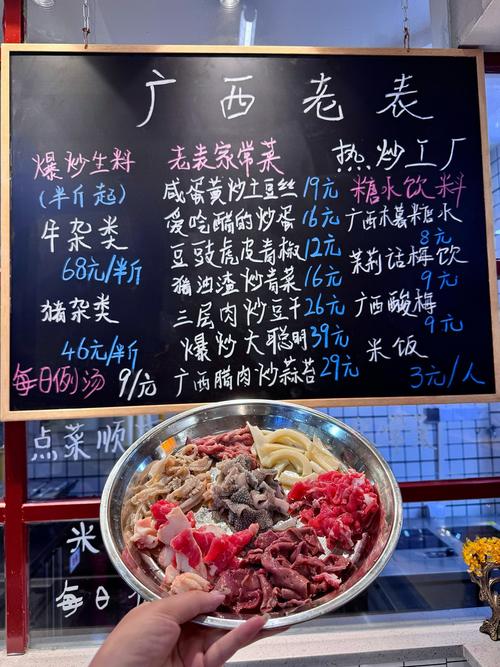 广西老表
热炒工厂
爆炒生料
(半斤起)
牛杂类
68元/半斤
猪杂类
46元/半斤
每日例汤 9/元
老表家常菜
咸蛋黄炒土豆丝 19元
爱吃醋的炒蛋 16元
豆豉虎皮青椒 12元
猪油渣炒青菜 16元
三层肉炒豆干 26元
爆炒大聪明 39元
广西腊肉炒蒜苔 29元
糖水饮料
广西木薯糖水
8元
茉莉话梅饮
9元
广西酸梅
9元
米饭
3元/人
点菜顺
米
每日